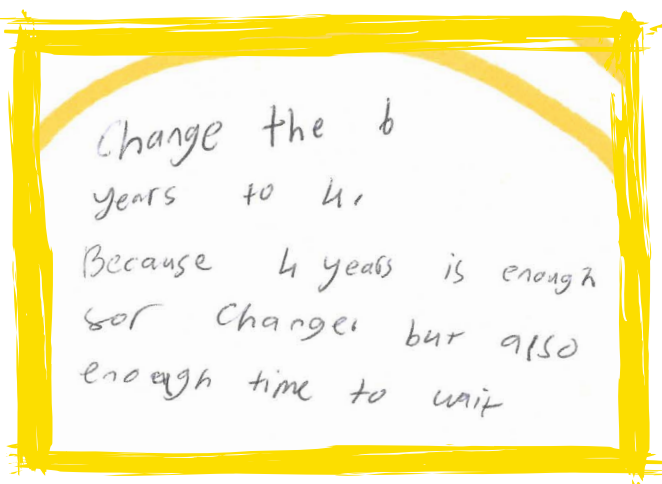 Change the 6
years to 4.
Because 4 years is enough
for Change. but also
enough time to wait